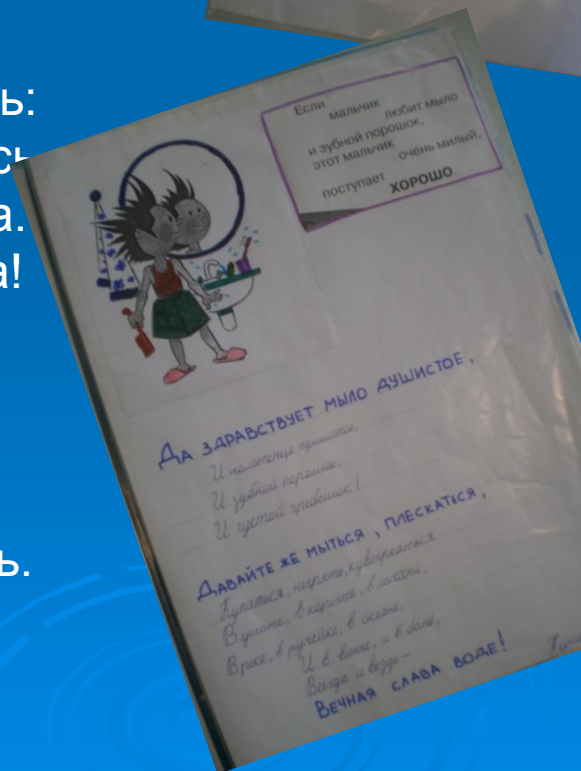 ь:
сь
а.
а!
ь.
Если
мальчик
любит мыло
и зубной порошок,
этот мальчик
очень милый,
поступает
ХОРОШО.
ДА ЗДРАВСТВУЕТ МЫЛО ДУШИСТОЕ,
И полотенце пушистое,
И зубной порошок,
И густой гребешок!
ДАВАЙТЕ ЖЕ МЫТЬСЯ, ПЛЕСКАТЬСЯ,
Купаться, нырять, кувыркаться
В ушате, в корыте, в лохани,
В реке, в ручейке, в океане,
И в ванне, и в бане,
Всегда и везде –
ВЕЧНАЯ СЛАВА ВОДЕ!